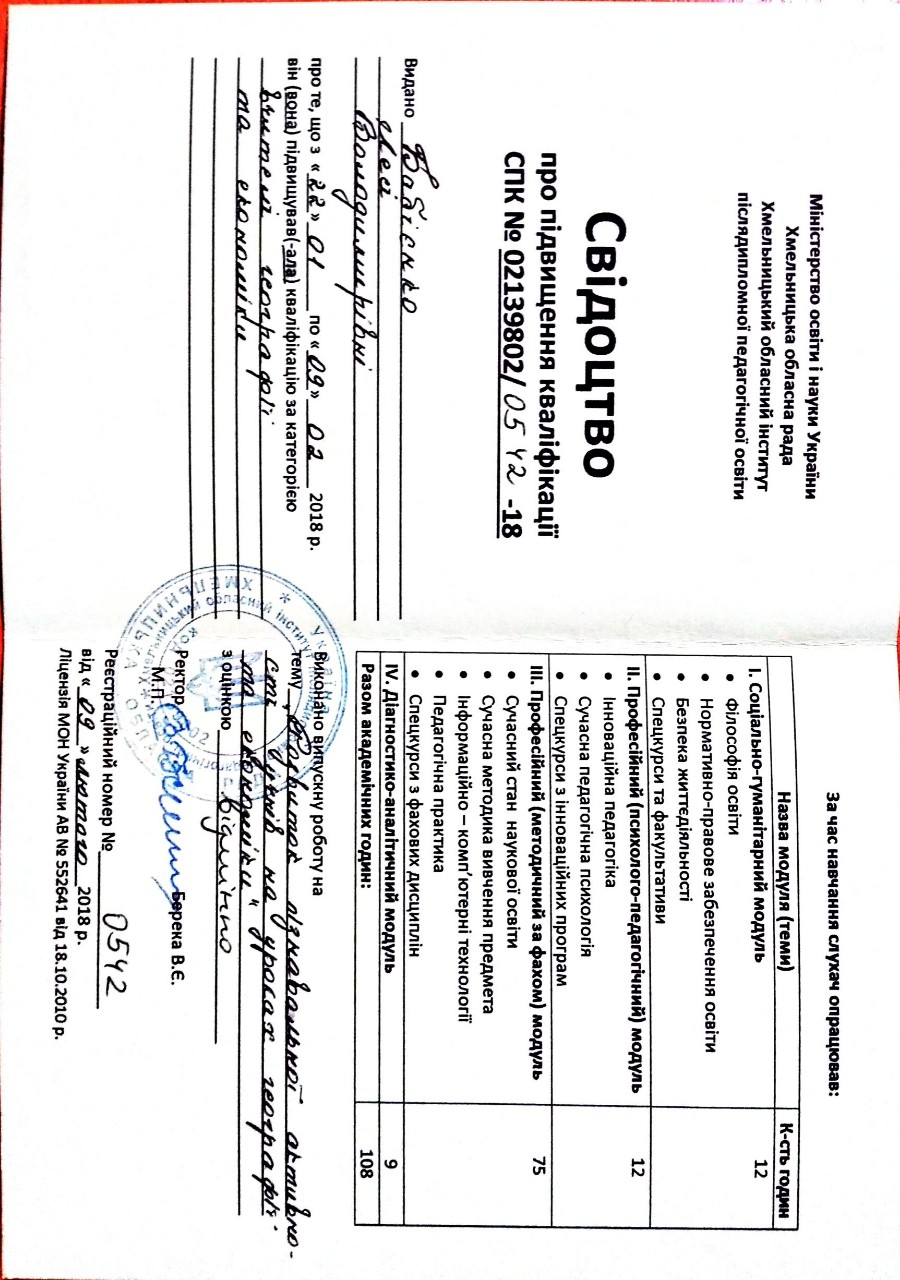 Міністерство освіти і науки України
Хмельницька обласна рада
Хмельницький обласний інститут
післядипломної педагогічної освіти
Свідоцтво
про підвищення кваліфікації
СПК № 02139802/0542 -18
Видано Бабієнко
Лесі
Володимирівні
про те, що з « 22 » 01 по « 09 » 02 2018 р.
він (вона) підвищував(-ала) кваліфікацію за категорією
вчителі географії
та економіки
За час навчання слухач опрацював:
Назва модуля (теми) К-сть годин
І. Соціально-гуманітарний модуль 12
• Філософія освіти
• Нормативно-правове забезпечення освіти
• Безпека життєдіяльності
• Спецкурси та факультативи
ІІ. Професійний (психолого-педагогічний) модуль 12
• Інноваційна педагогіка
• Сучасна педагогічна психологія
• Спецкурси з інноваційних програм
ІІІ. Професійний (методичний за фахом) модуль 75
• Сучасний стан наукової освіти
• Сучасна методика вивчення предмета
• Інформаційно – комп’ютерні технології
• Педагогічна практика
• Спецкурси з фахових дисциплін
ІV. Діагностико-аналітичний модуль 9
Разом академічних годин: 108
Виконано випускну роботу на
тему „Розвиток пізнавальної активно-
сті учнів на уроках географії
та економіки“
з оцінкою відмінно
Ректор Берека В.Є.
М.П.
Реєстраційний номер № 0542
від « 09 » лютого 2018 р.
Ліцензія МОН України АВ № 552641 від 18.10.2010 р.